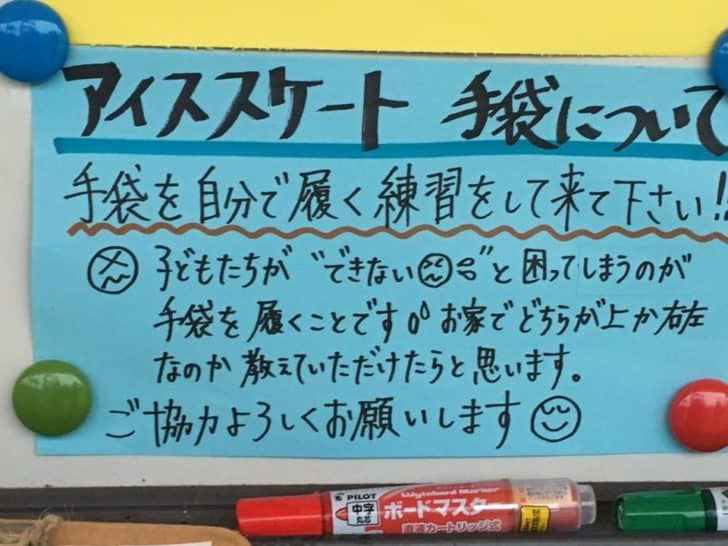 アイススケート 手袋について
手袋を自分で履く練習をして来て下さい!!
子どもたちが“できない”と困ってしまうのが
手袋を履くことです お家でどちらが上か右左
なのか教えていただけたらと思います。
ご協力よろしくお願いします
PILOT
Wyteboard Marker
中字
丸芯
ボードマスター
直液カートリッジ式